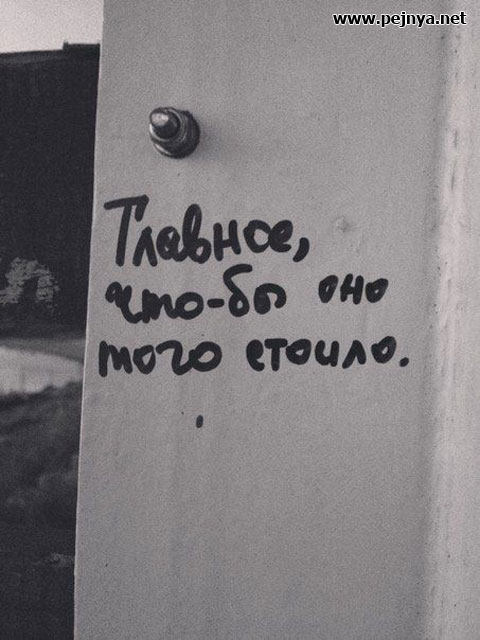 www.pejnya.net
Главное,
что-бы оно
того стоило.